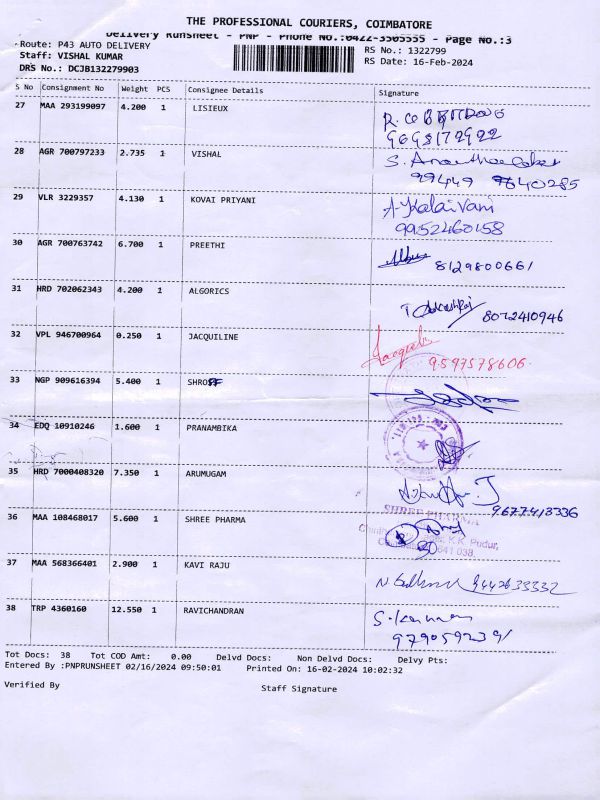 THE PROFESSIONAL COURIERS, COIMBATORE
Delivery Runsheet - PNP - Phone No.:0422-3505555 - Page No.:3
Route: P43 AUTO DELIVERY RS No.: 1322799
Staff: VISHAL KUMAR RS Date: 16-Feb-2024
DRS No.: DCJB132279903
S No Consignment No Weight PCS Consignee Details Signature
27 MAA 293199097 4.200 1 LISIEUX
28 AGR 700797233 2.735 1 VISHAL
29 VLR 3229357 4.130 1 KOVAI PRIYANI A. Kalaivani
9952460158
30 AGR 700763742 6.700 1 PREETHI 8129800661
31 HRD 702062343 4.200 1 ALGORICS 8072410946
32 VPL 946700964 0.250 1 JACQUILINE 9597578606
33 NGP 909616394 5.400 1 SHROFF
34 EDQ 10910246 1.600 1 PRANAMBIKA
35 HRD 7000408320 7.350 1 ARUMUGAM 9677413336
36 MAA 108468017 5.600 1 SHREE PHARMA SHREE PHARMA
K.K. Pudur,
641 038
37 MAA 568366401 2.900 1 KAVI RAJU
38 TRP 4360160 12.550 1 RAVICHANDRAN
Tot Docs: 38 Tot COD Amt: 0.00 Delvd Docs: Non Delvd Docs: Delvy Pts:
Entered By :PNPRUNSHEET 02/16/2024 09:50:01 Printed On: 16-02-2024 10:02:32
Verified By Staff Signature